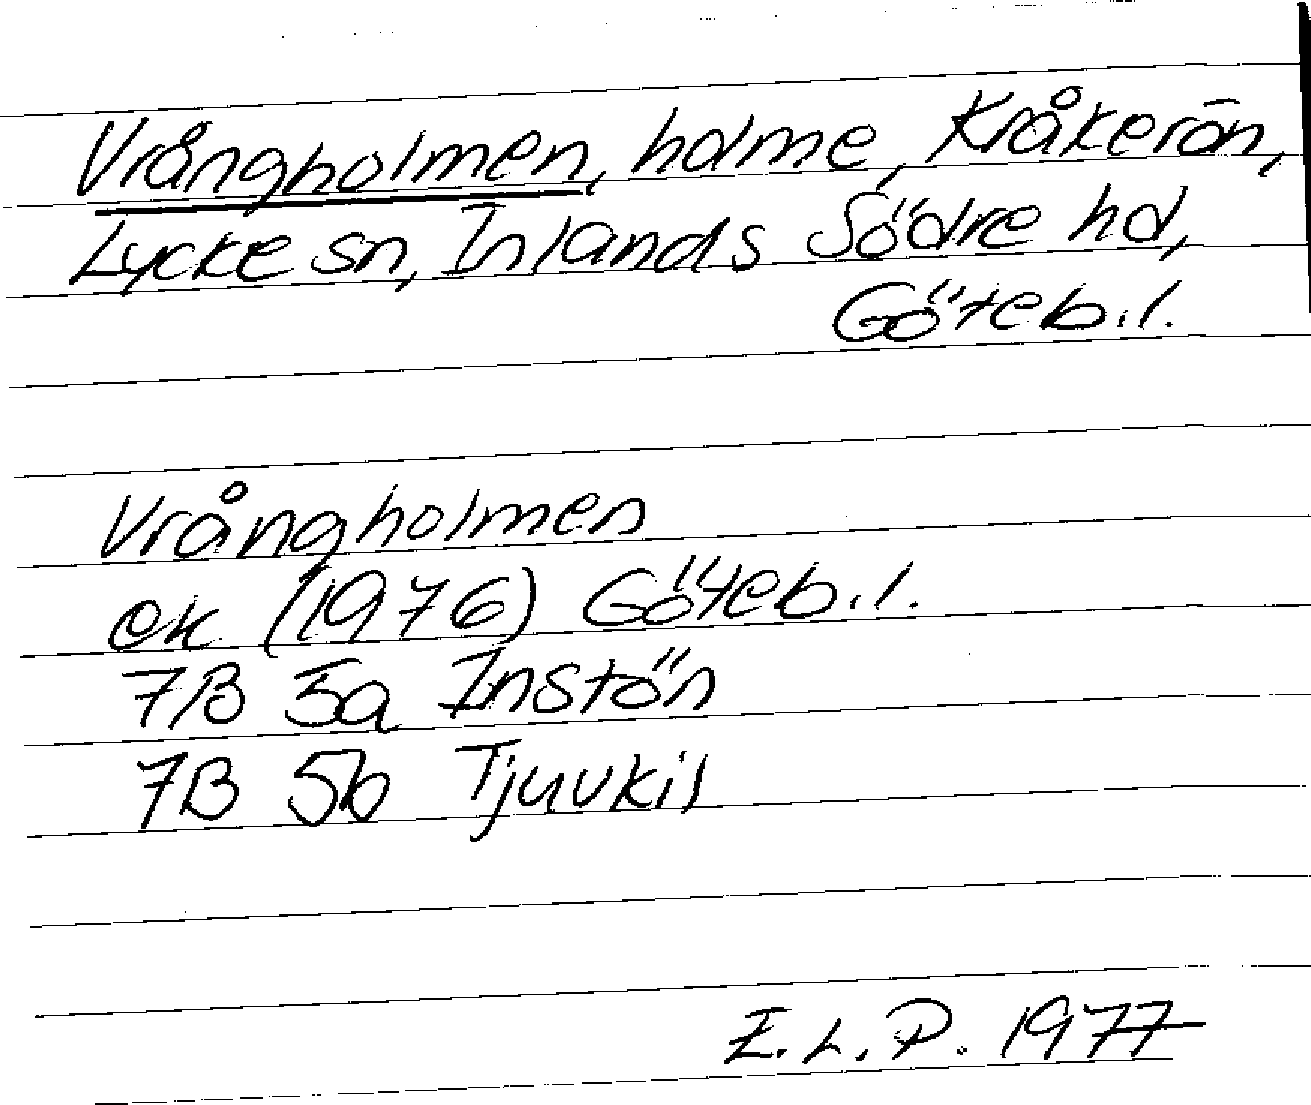 Vrångholmen, holme, Kråkerön,
Lycke sn, Inlands Södre hd,
Göteb.l.
Vrångholmen
ek (1976) Göteb.l.
7B 5a Instön
7B 5b Tjuvkil
E.L.P. 1977